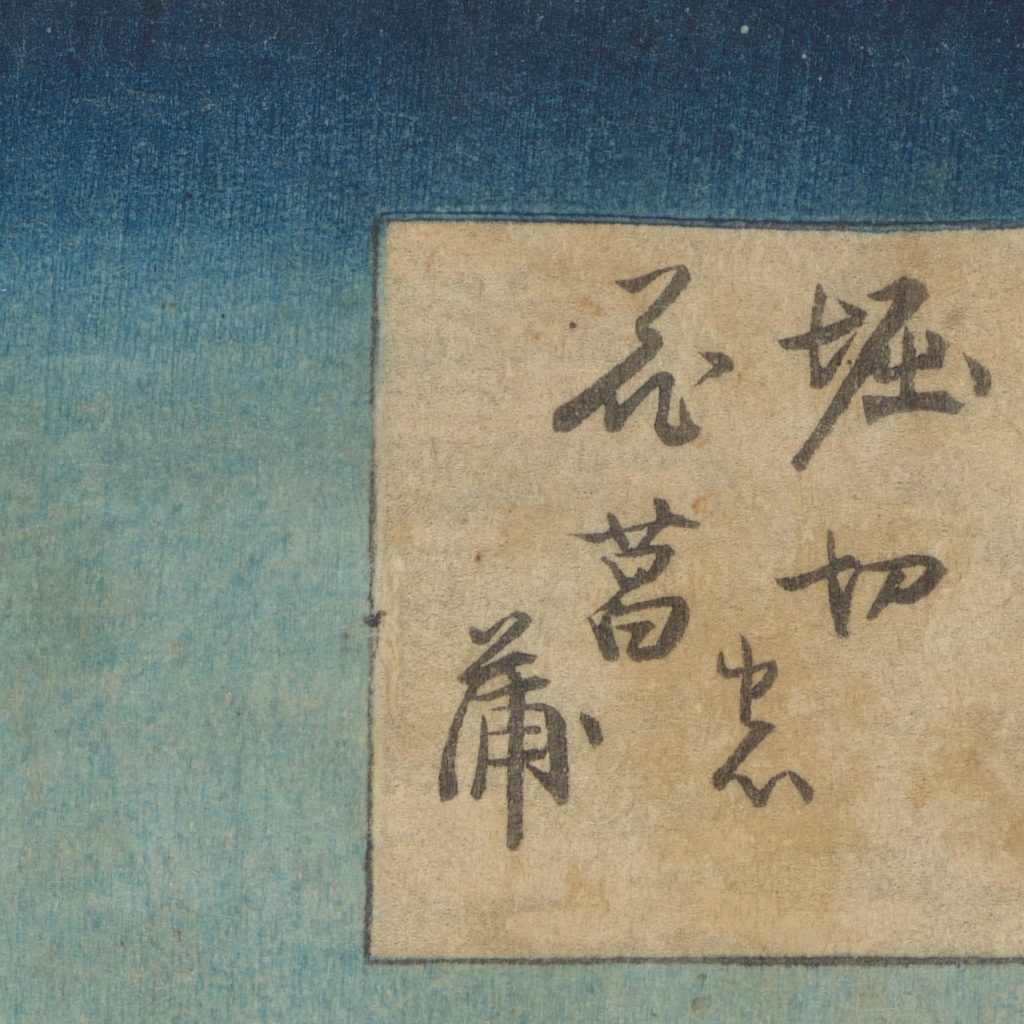 堀切の
花菖蒲